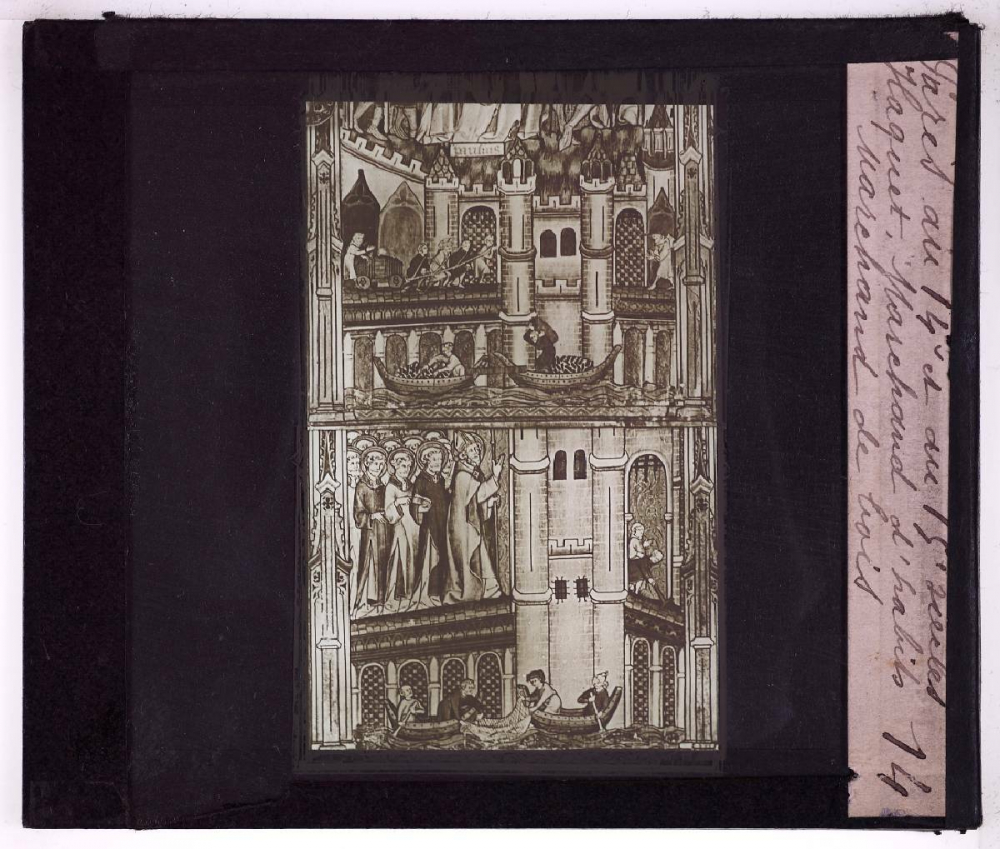 Paris au 14e et au 15e siecles
Haquet. Marchand d'habits
Marchand de bois
14